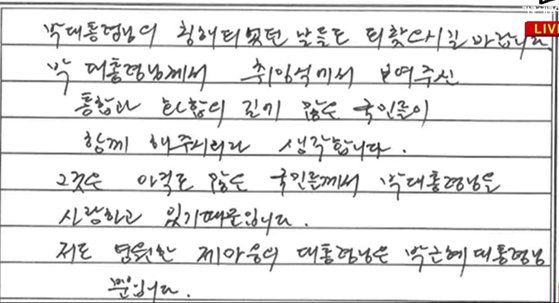 LIVE
박대통령님의 침해되었던 날들도 되찾으시길 바랍니다
박 대통령님께서 취임식에서 보여주신
통합과 화합의 길에 많은 국민들이
함께 해주시리라 생각합니다.
그것은 아직도 많은 국민들께서 박대통령님을
사랑하고 있기때문입니다.
저도 영원한 제마음의 대통령님은 박근혜 대통령님
뿐입니다.